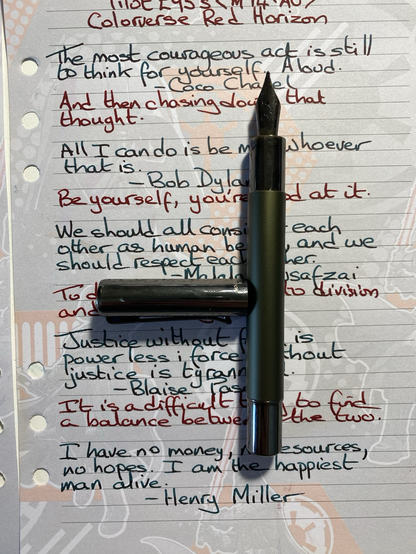 Colorverse Red Horizon
The most courageous act is still
to think for yourself. Aloud.
- Coco Chanel
And then chasing down that
thought.
All I can do is be me, whoever
that is.
- Bob Dylan
Be yourself, you're good at it.
We should all consider each
other as human be , and we
should respect each other.
- Malala Yousafzai
To to division
and
Justice without f is
powerless; force without
justice is tyrann
- Blaise Pas
It is a difficult t to find
a balance between the two.
I have no money, no resources,
no hopes. I am the happiest
man alive.
- Henry Miller